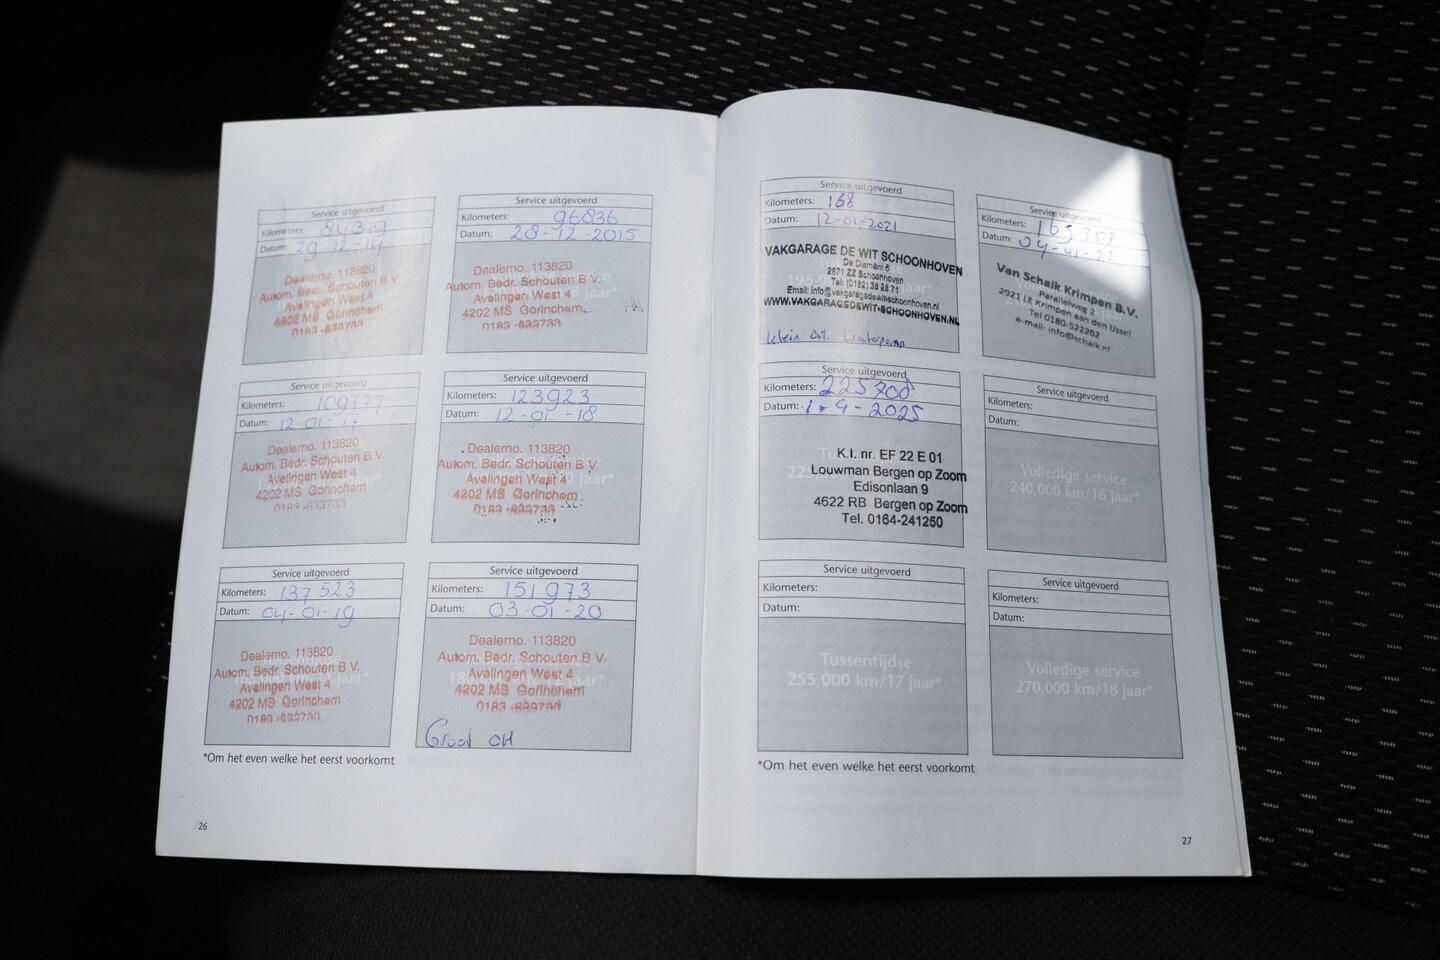 Service uitgevoerd
Kilometers: 84319
Datum: 29-12-14
Dealerno. 113820
Autom. Bedr. Schouten B V.
Avelingen West 4
4202 MS Gorinchem
0183-633733
Service uitgevoerd
Kilometers: 96836
Datum: 28-12-2015
Dealerno. 113820
Autom. Bedr. Schouten B V.
Avelingen West 4
4202 MS Gorinchem
0183-633733
Service uitgevoerd
Kilometers: 109777
Datum: 12-01-17
Dealerno. 113820
Autom. Bedr. Schouten B V.
Avelingen West 4
4202 MS Gorinchem
0183-633733
Service uitgevoerd
Kilometers: 123923
Datum: 12-01-18
Dealerno. 113820
Autom. Bedr. Schouten B V.
Avelingen West 4
4202 MS Gorinchem
0183-633733
Service uitgevoerd
Kilometers: 137523
Datum: 04-01-19
Dealerno. 113820
Autom. Bedr. Schouten B V.
Avelingen West 4
4202 MS Gorinchem
0183-633733
Service uitgevoerd
Kilometers: 151973
Datum: 03-01-20
Dealerno. 113820
Autom. Bedr. Schouten B V.
Avelingen West 4
4202 MS Gorinchem
0183-633733
Groot OH
*Om het even welke het eerst voorkomt
26
Service uitgevoerd
Kilometers: 168
Datum: 12-01-2021
VAKGARAGE DE WIT SCHOONHOVEN
De Diamant 6
2871 ZZ Schoonhoven
Tel: (0182) 38 28 71
Email: info@vakgaragedewit-schoonhoven.nl
WWW.VAKGARAGEDEWIT-SCHOONHOVEN.NL
klein OH. waterpomp
Service uitgevoerd
Kilometers: 165353
Datum: 04-01-22
Van Schaik Krimpen B.V.
Parallelweg 2
2921 LE Krimpen aan den IJssel
Tel 0180-522202
e-mail: info@schaik.nl
Service uitgevoerd
Kilometers: 225708
Datum: 1-9-2025
K.I. nr. EF 22 E 01
Louwman Bergen op Zoom
Edisonlaan 9
4622 RB Bergen op Zoom
Tel. 0164-241250
Service uitgevoerd
Kilometers:
Datum:
Volledige service
240,000 km/16 jaar*
Service uitgevoerd
Kilometers:
Datum:
Tussentijdse
255,000 km/17 jaar*
Service uitgevoerd
Kilometers:
Datum:
Volledige service
270,000 km/18 jaar*
*Om het even welke het eerst voorkomt
27